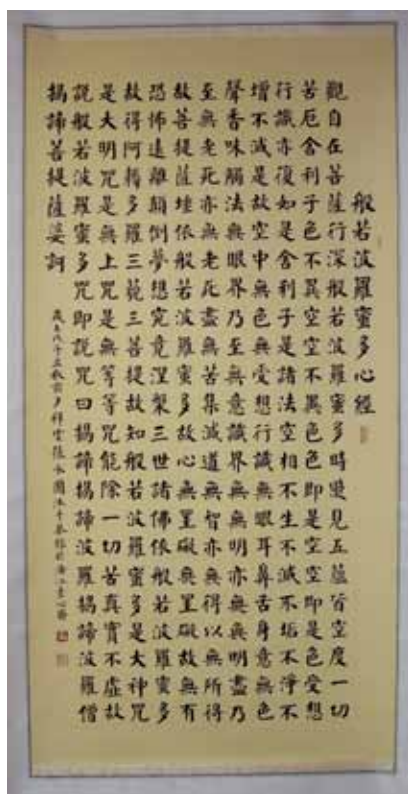 般若波羅蜜多心經
觀自在菩薩行深般若波羅蜜多時照見五蘊皆空度一切
苦厄舍利子色不異空空不異色色即是空空即是色受想
行識亦復如是舍利子是諸法空相不生不滅不垢不淨不
增不減是故空中無色無受想行識無眼耳鼻舌身意無色
聲香味觸法無眼界乃至無意識界無無明亦無無明盡乃
至無老死亦無老死盡無苦集滅道無智亦無得以無所得
故菩提薩埵依般若波羅蜜多故心無罣礙無罣礙故無有
恐怖遠離顛倒夢想究竟涅槃三世諸佛依般若波羅蜜多
故得阿耨多羅三藐三菩提故知般若波羅蜜多是大神咒
是大明咒是無上咒是無等等咒能除一切苦真實不虛故
說般若波羅蜜多咒即說咒曰揭諦揭諦波羅揭諦波羅僧
揭諦菩提薩婆訶